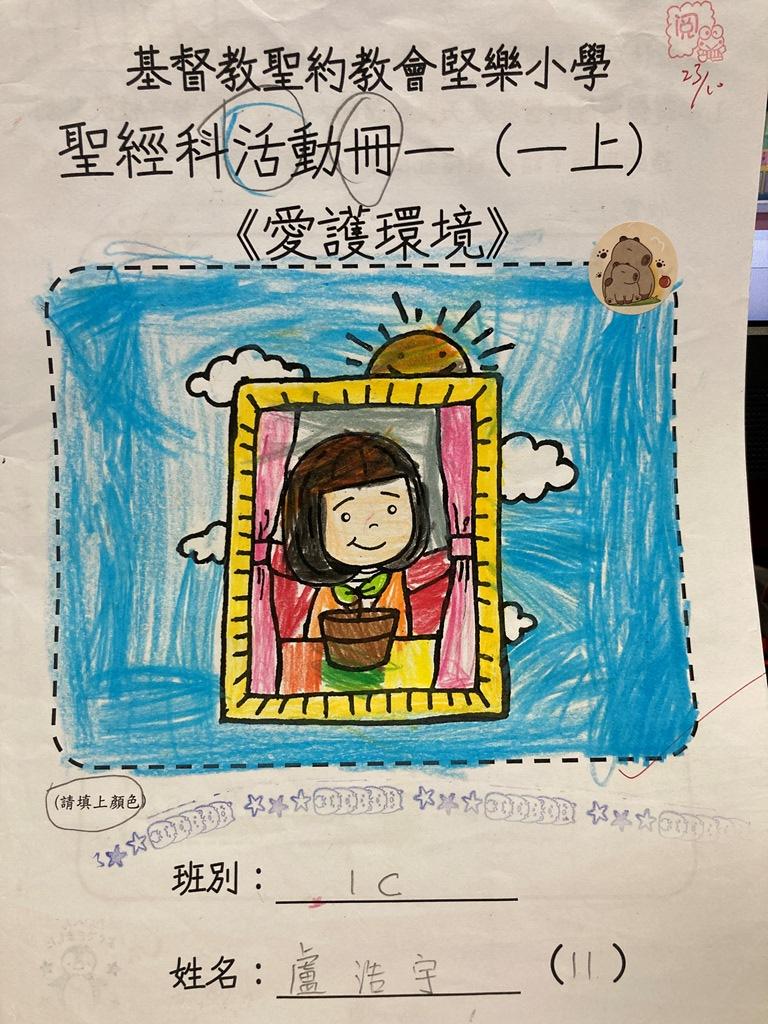 閱
23/10
基督教聖約教會堅樂小學
聖經科活動冊一（一上）
《愛護環境》
(請填上顏色)
班別：1C
姓名：盧浩宇（11）